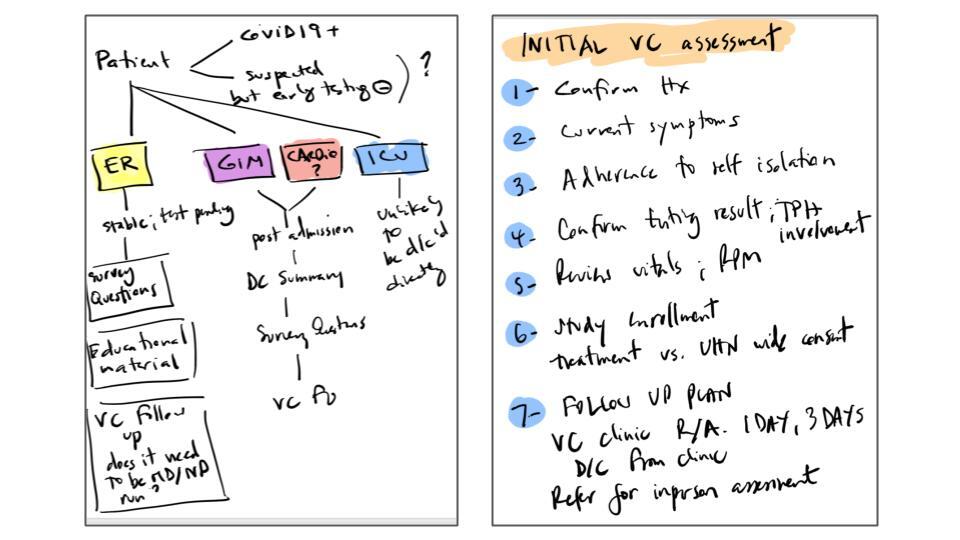 Patient
COVID19+
suspected
but early testing ⊖
?
ER
GIM
CARDIO
?
ICU
stable; test pending
Survey
Questions
Educational
material
VC Follow
up
does it need
to be MD/NP
run?
post admission
DC Summary
Survey Questions
VC FU
Unlikely
to
be d/c'd
directly
INITIAL VC assessment
1- Confirm Hx
2- Current symptoms
3- Adherence to self isolation
4- Confirm testing result; TPH
involvement
5- Review vitals; RPM
6- Study enrollment
treatment vs. UHN wide consent
7- FOLLOW UP PLAN
VC clinic R/A. 1DAY, 3 DAYS
D/C from clinic
Refer for inperson assessment